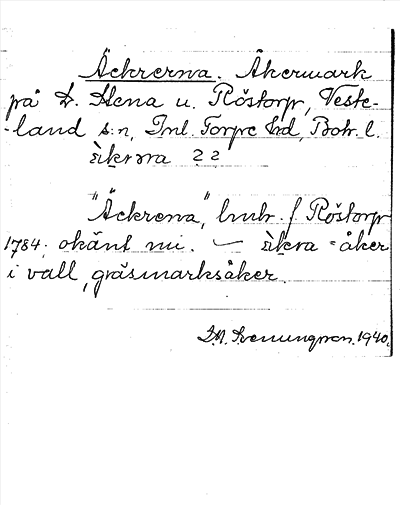 Äckrerna. Åkermark
på St. Stena u. Röstorp, Veste-
-land s:n, Inl. Torpe hd, Boh. l.
ä̀krɷra 22
"Äckrena", hmbr. f. Röstorp
1784; okänt nu. — ä̀kra = åker
i vall, gräsmarksåker.
1940.